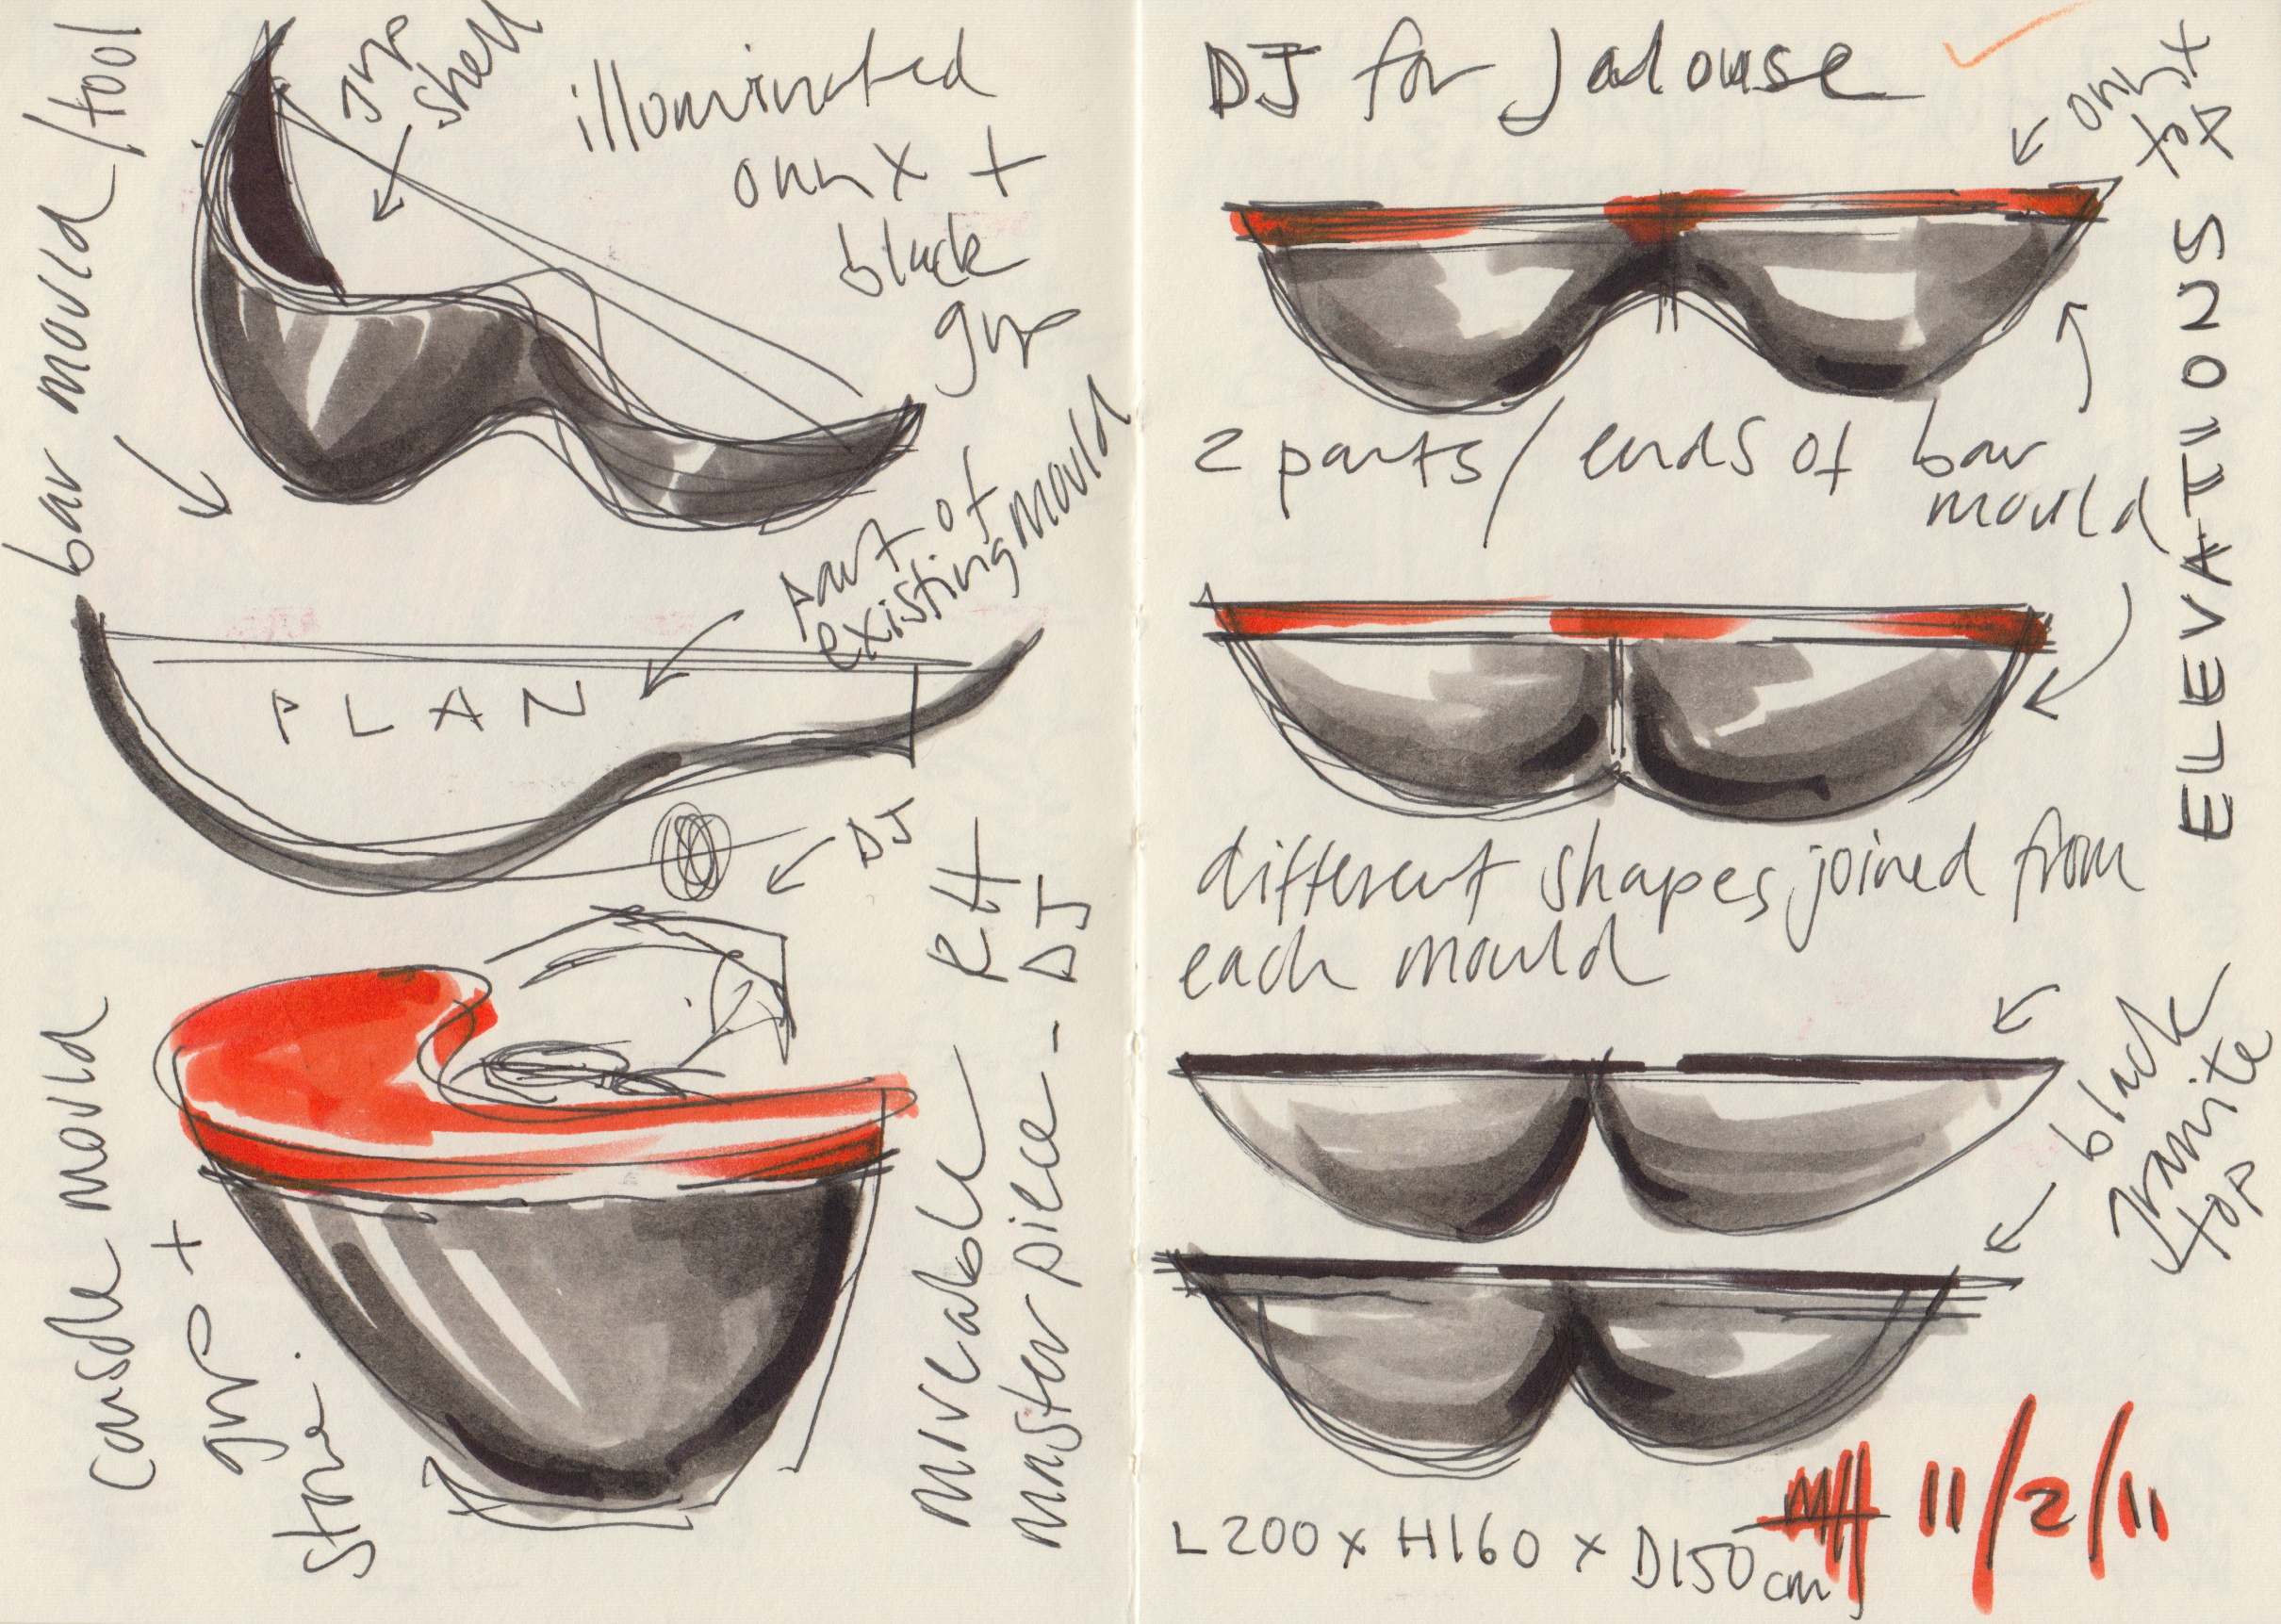 bar mould/tool
grp
shell
illuminated
onyx +
black
grp
part of
existing mould
PLAN
DJ
console mould
grp +
stone.
moveable
master piece - DJ
DJ for Jalouse
onyx
top
2 parts/ends of bar
mould
ELEVATIONS
different shapes joined from
each mould
black
granite
top
L200 x H160 x D150cm
MH 11/2/11